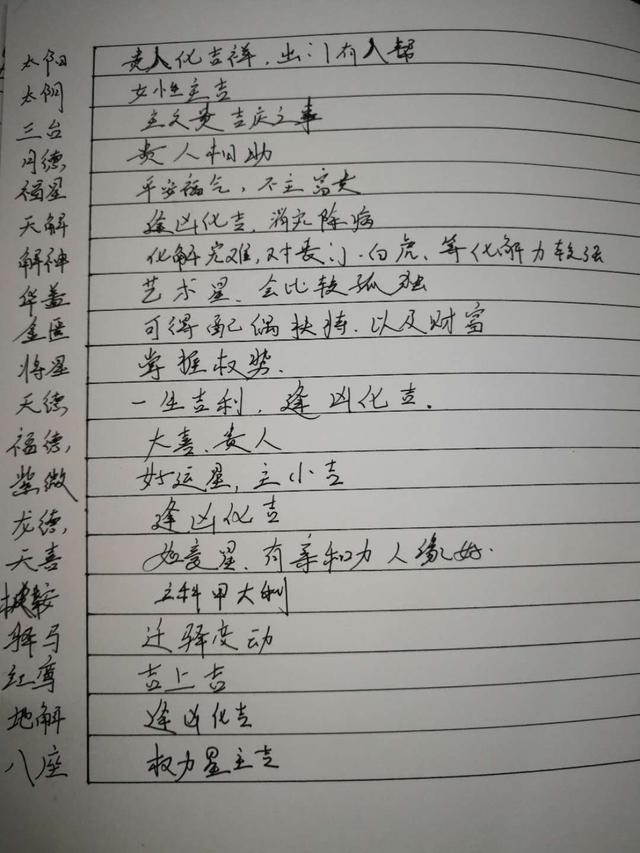 太阳 贵人化吉祥,出门有人帮
太阴 女性主吉
三台 主文贵吉庆之事
月德 贵人相助
福星 平安福气,不主富贵
天解 逢凶化吉,消灾除病
解神 化解灾难,对丧门、白虎、等化解力较强
华盖 艺术星、会比较孤独
金匮 可得配偶扶持、以及财富
将星 掌握权势.
天德, 一生吉利,逢凶化吉.
福德, 大喜、贵人
紫微 好运星,主小吉
龙德, 逢凶化吉
天喜 星、有亲和力人缘好.
鞍 主科甲大利
驿马 迁驿变动
红鸾 吉上吉
地解 逢凶化吉
八座 权力星主吉